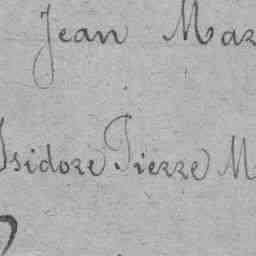 Jean Mar
Isidore Pierre M